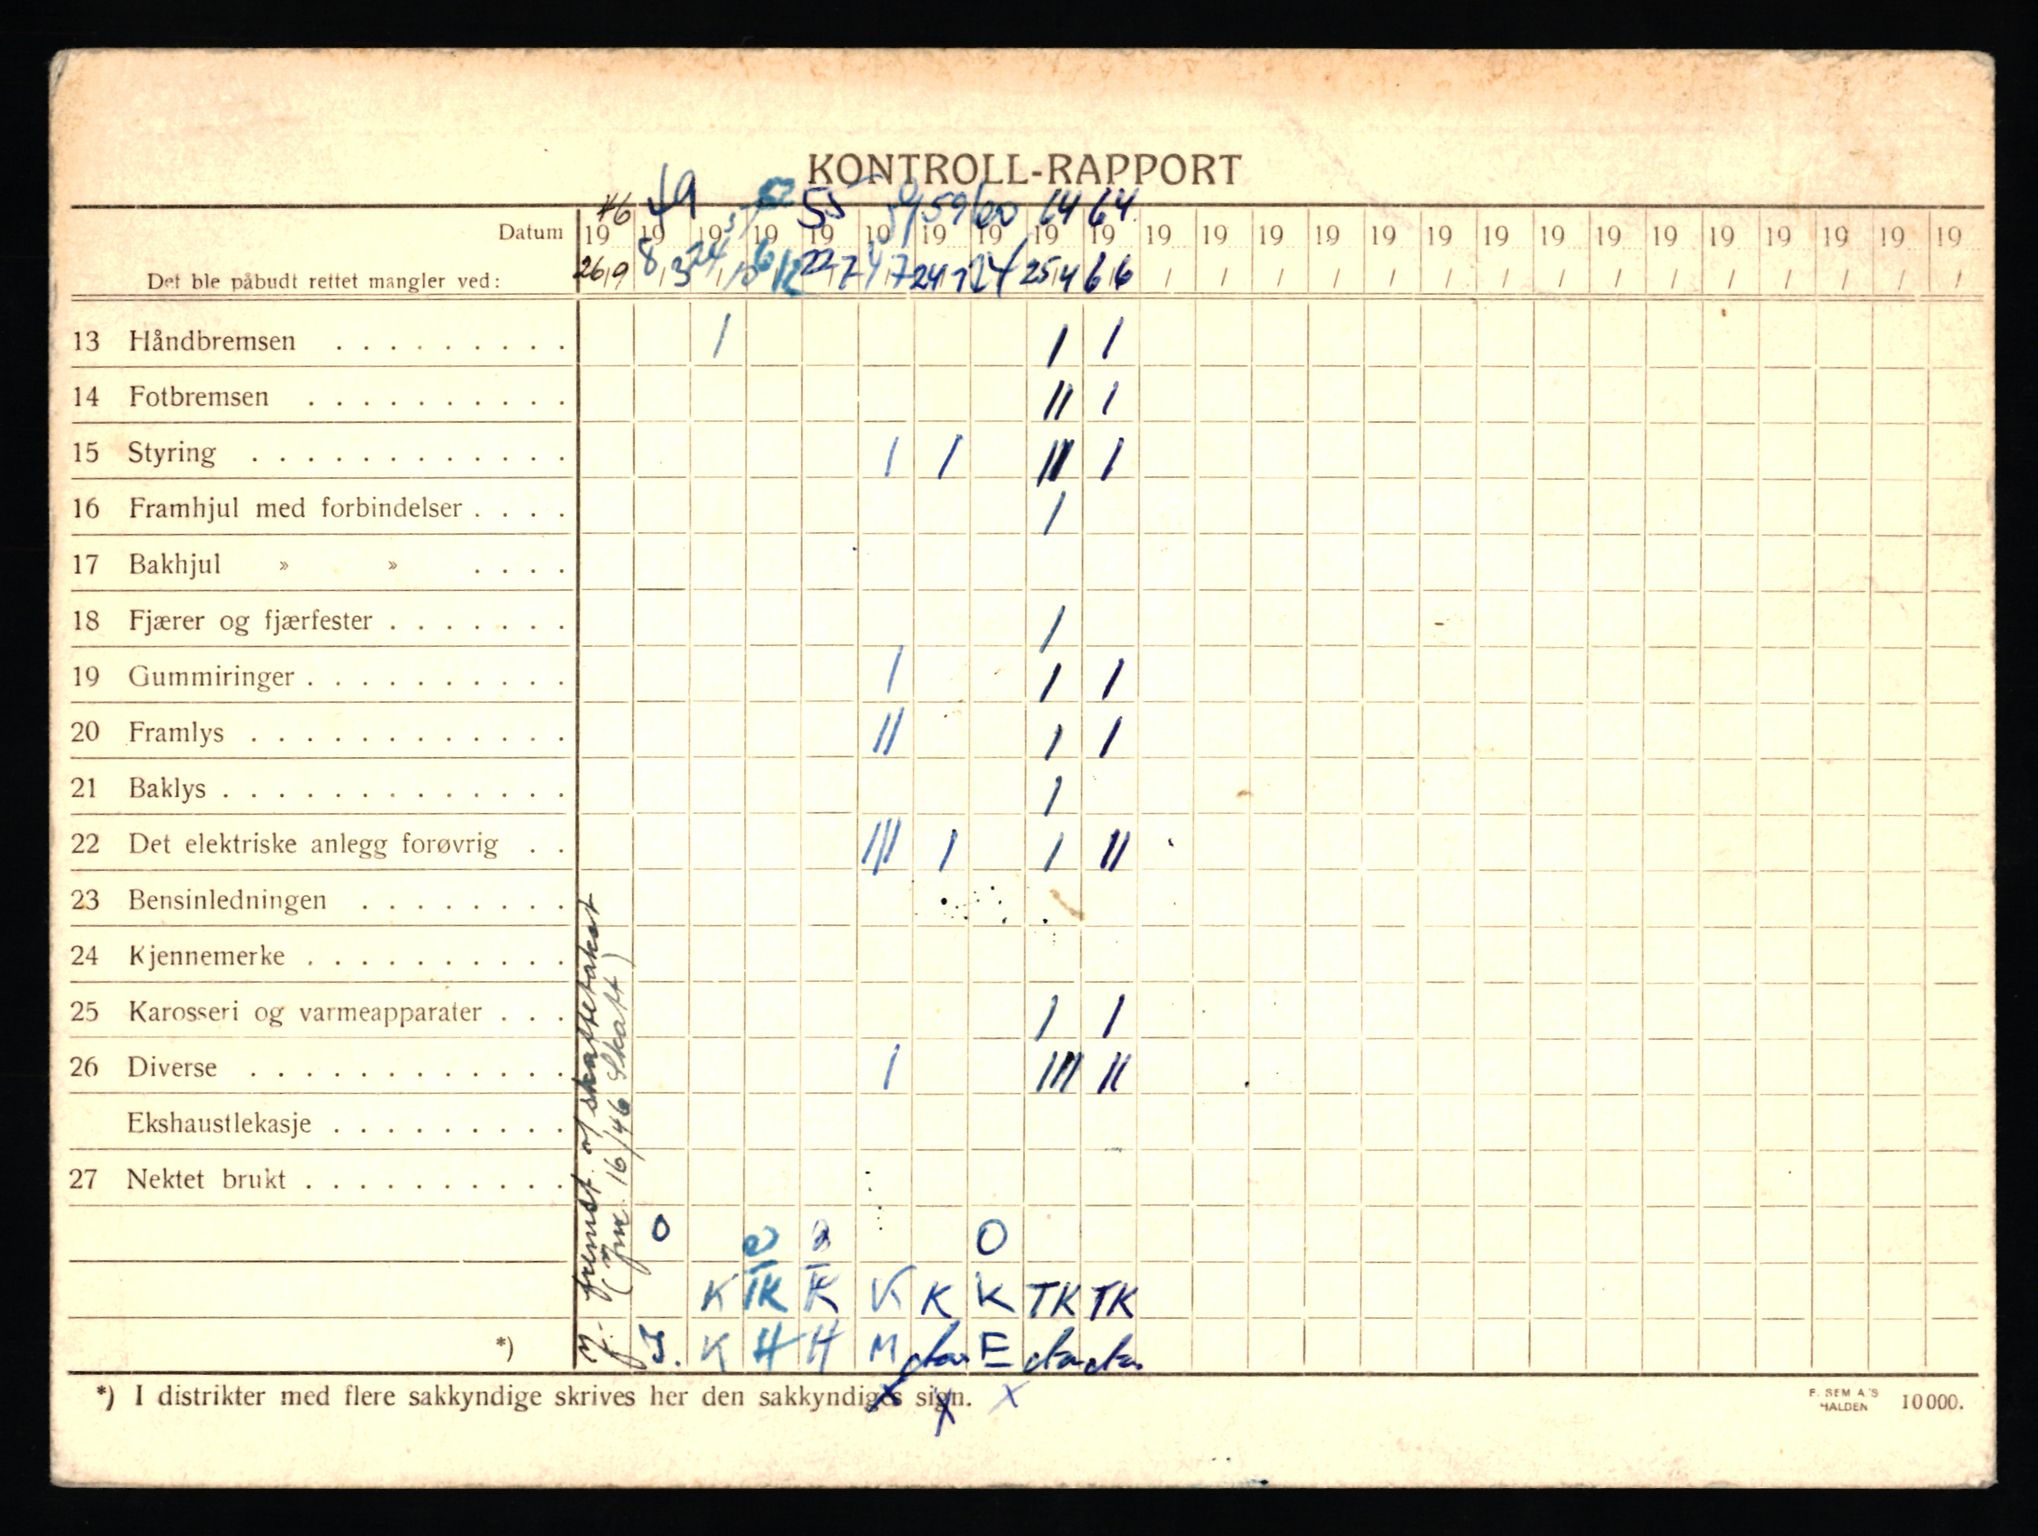 KONTROLL-RAPPORT
46 49 52 55 59 59 60 64 64
Datum 19 19 19 19 19 19 19 19 19 19 19 19 19 19 19 19 19 19 19 19 19 19 19 19 19
Det ble påbudt rettet mangler ved: 26/9 8/3 24/10 6/12 22/7 4/7 24/7 25/4 6/6 / / / / / / / / / / / / / / /
13 Håndbremsen . . . . . . . . . I I I
14 Fotbremsen . . . . . . . . . . II I
15 Styring . . . . . . . . . . . . I I III I
16 Framhjul med forbindelser . . . . I
17 Bakhjul » » . . . .
18 Fjærer og fjærfester . . . . . . . I
19 Gummiringer . . . . . . . . . . I I I
20 Framlys . . . . . . . . . . . . II I I
21 Baklys . . . . . . . . . . . . . I
22 Det elektriske anlegg forøvrig . . III I I II
23 Bensinledningen . . . . . . . .
24 Kjennemerke . . . . . . . . . .
25 Karosseri og varmeapparater . . . I I
26 Diverse . . . . . . . . . . . . I IIII II
Ekshaustlekasje . . . . . . . . .
27 Nektet brukt . . . . . . . . . .
fremst. skattetakst
16/46 Skatt)
O O
K TK K K K K TK TK
*) J. K H H M E
*) I distrikter med flere sakkyndige skrives her den sakkyndiges sign.
x x x
F. SEM A'S
HALDEN
10000.